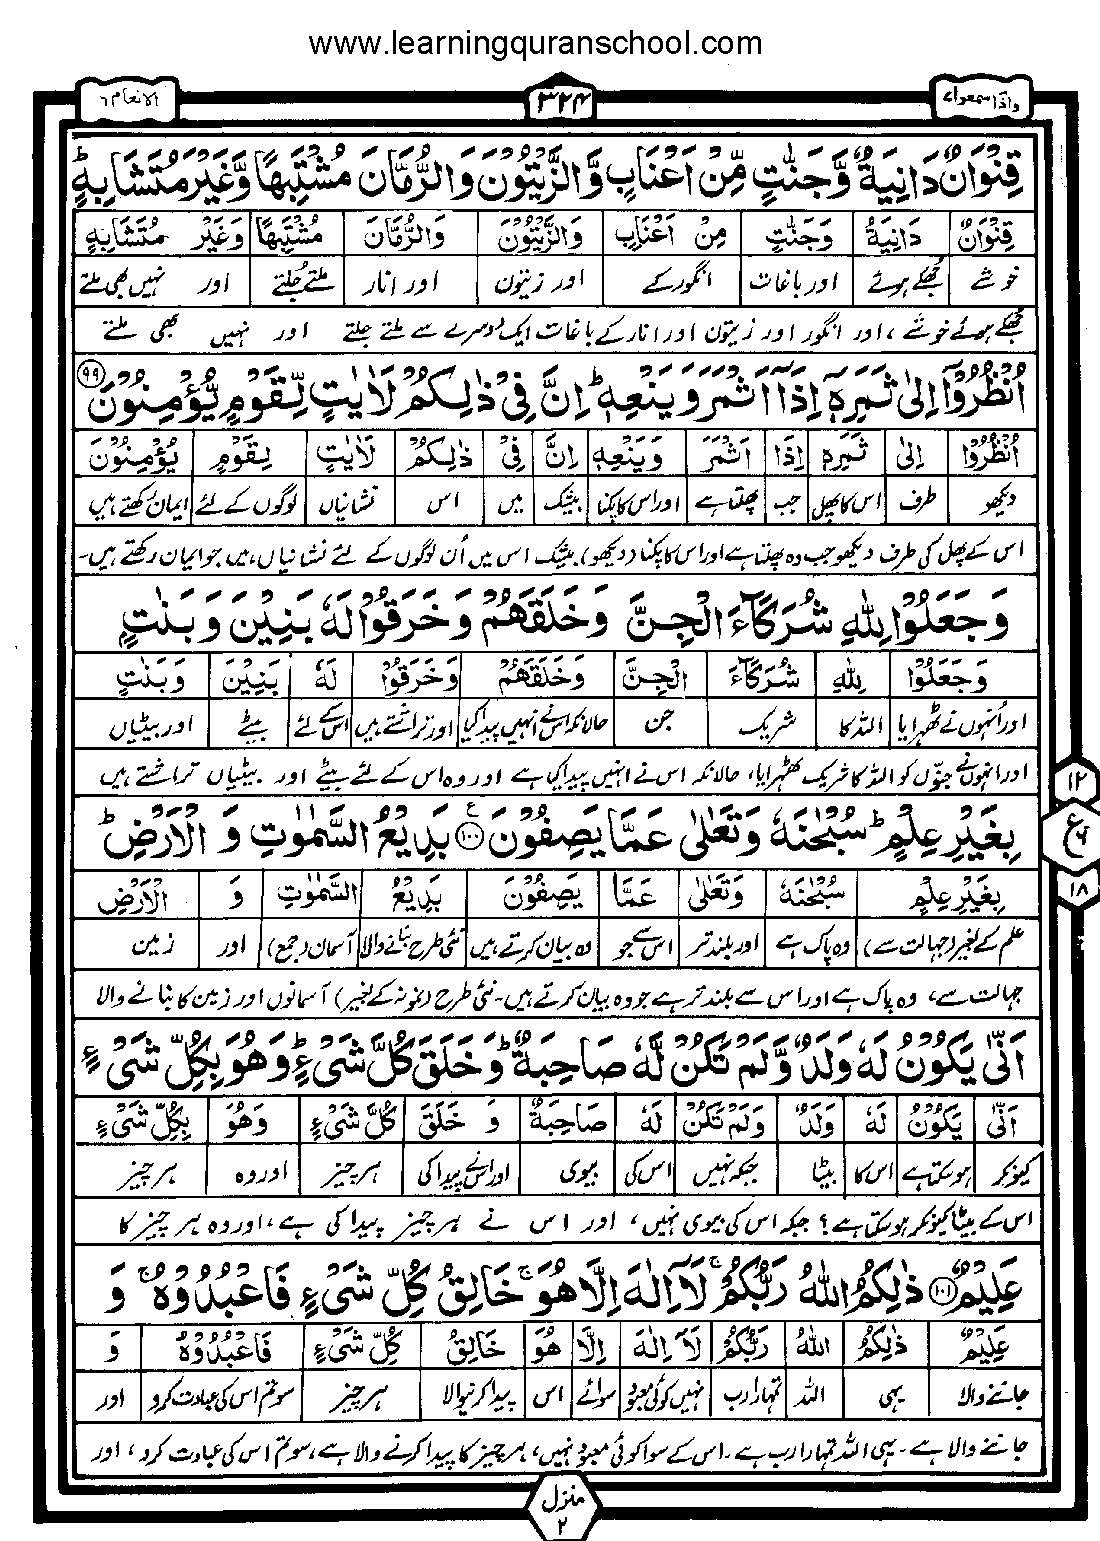 www.learningquranschool.com
واذا سمعوا ٧ ٣٢٤ الانعام ٦
قِنْوَانٌ دَانِيَةٌ وَّجَنّٰتٍ مِّنْ اَعْنَابٍ وَّالزَّيْتُوْنَ وَالرُّمَّانَ مُشْتَبِهًا وَّغَيْرَ مُتَشَابِهٍ ؕ
قِنْوَانٌ دَانِيَةٌ وَجَنّٰتٍ مِنْ اَعْنَابٍ وَالزَّيْتُوْنَ وَالرُّمَّانَ مُشْتَبِهًا وَغَيْرَ مُتَشَابِهٍ
خوشے جھکے ہوئے اور باغات انگور کے اور زیتون اور انار ملتے جلتے اور نہیں بھی ملتے
جھکے ہوئے خوشے ، اور انگور اور زیتون اور انار کے باغات ایک دوسرے سے ملتے جلتے اور نہیں بھی ملتے
اُنْظُرُوْٓا اِلٰى ثَمَرِهٖٓ اِذَآ اَثْمَرَ وَيَنْعِهٖ ؕ اِنَّ فِيْ ذٰلِكُمْ لَاٰيٰتٍ لِّقَوْمٍ يُّؤْمِنُوْنَ ٩٩
اُنْظُرُوْا اِلٰى ثَمَرِهٖ اِذَا اَثْمَرَ وَيَنْعِهٖ اِنَّ فِيْ ذٰلِكُمْ لَاٰيٰتٍ لِقَوْمٍ يُؤْمِنُوْنَ
دیکھو طرف اس کا پھل جب پھلتا ہے اور اس کا پکنا بیشک میں اس نشانیاں لوگوں کے لئے ایمان رکھتے ہیں
اس کے پھل کی طرف دیکھو جب وہ پھلتا ہے اور اس کا پکنا (دیکھو) بیشک اس میں اُن لوگوں کے لئے نشانیاں ہیں جو ایمان رکھتے ہیں۔
وَجَعَلُوْا لِلّٰهِ شُرَكَآءَ الْجِنَّ وَخَلَقَهُمْ وَخَرَقُوْا لَهٗ بَنِيْنَ وَبَنٰتٍ
وَجَعَلُوْا لِلّٰهِ شُرَكَآءَ الْجِنَّ وَخَلَقَهُمْ وَخَرَقُوْا لَهٗ بَنِيْنَ وَبَنٰتٍ
اور اُنہوں نے ٹھہرایا اللہ کا شریک جن حالانکہ اسنے انہیں پیدا کیا اور تراشتے ہیں اسکے لئے بیٹے اور بیٹیاں
اور انہوں نے جنّوں کو اللہ کا شریک ٹھہرایا، حالانکہ اس نے انہیں پیدا کیا ہے اور وہ اس کے لئے بیٹے اور بیٹیاں تراشتے ہیں
بِغَيْرِ عِلْمٍ ؕ سُبْحٰنَهٗ وَتَعٰلٰى عَمَّا يَصِفُوْنَ ١٠٠ ع بَدِيْعُ السَّمٰوٰتِ وَ الْاَرْضِ ؕ
١٢ ع ٦ ١٨
بِغَيْرِ عِلْمٍ سُبْحٰنَهٗ وَتَعٰلٰى عَمَّا يَصِفُوْنَ بَدِيْعُ السَّمٰوٰتِ وَ الْاَرْضِ
علم کے بغیر (جہالت سے) وہ پاک ہے اور بلند تر اس سے جو وہ بیان کرتے ہیں نئی طرح بنانے والا آسمان (جمع) اور زمین
جہالت سے، وہ پاک ہے اور اس سے بلند تر ہے جو وہ بیان کرتے ہیں۔ نئی طرح (نمونہ کے بغیر) آسمانوں اور زمین کا بنانے والا
اَنّٰى يَكُوْنُ لَهٗ وَلَدٌ وَّلَمْ تَكُنْ لَّهٗ صَاحِبَةٌ ؕ وَخَلَقَ كُلَّ شَيْءٍ ۚ وَهُوَ بِكُلِّ شَيْءٍ
اَنّٰى يَكُوْنُ لَهٗ وَلَدٌ وَلَمْ تَكُنْ لَهٗ صَاحِبَةٌ وَ خَلَقَ كُلَّ شَيْءٍ وَهُوَ بِكُلِّ شَيْءٍ
کیونکر ہو سکتا ہے اس کا بیٹا جبکہ نہیں اس کی بیوی اور اسنے پیدا کی ہر چیز اور وہ ہر چیز
اس کے بیٹا کیونکر ہو سکتا ہے؟ جبکہ اس کی بیوی نہیں، اور اس نے ہر چیز پیدا کی ہے، اور وہ ہر چیز کا
عَلِيْمٌ ١٠١ ذٰلِكُمُ اللّٰهُ رَبُّكُمْ ۚ لَآ اِلٰهَ اِلَّا هُوَ ۚ خَالِقُ كُلِّ شَيْءٍ فَاعْبُدُوْهُ ۚ وَ
عَلِيْمٌ ذٰلِكُمُ اللّٰهُ رَبُّكُمْ لَآ اِلٰهَ اِلَّا هُوَ خَالِقُ كُلِّ شَيْءٍ فَاعْبُدُوْهُ وَ
جاننے والا یہی اللہ تمہارا رب نہیں کوئی معبود سوائے اس پیدا کرنیوالا ہر چیز سو تم اس کی عبادت کرو اور
جاننے والا ہے۔ یہی اللہ تمہارا رب ہے۔ اس کے سوا کوئی معبود نہیں، ہر چیز کا پیدا کرنے والا ہے، سو تم اس کی عبادت کرو ، اور
منزل ٢